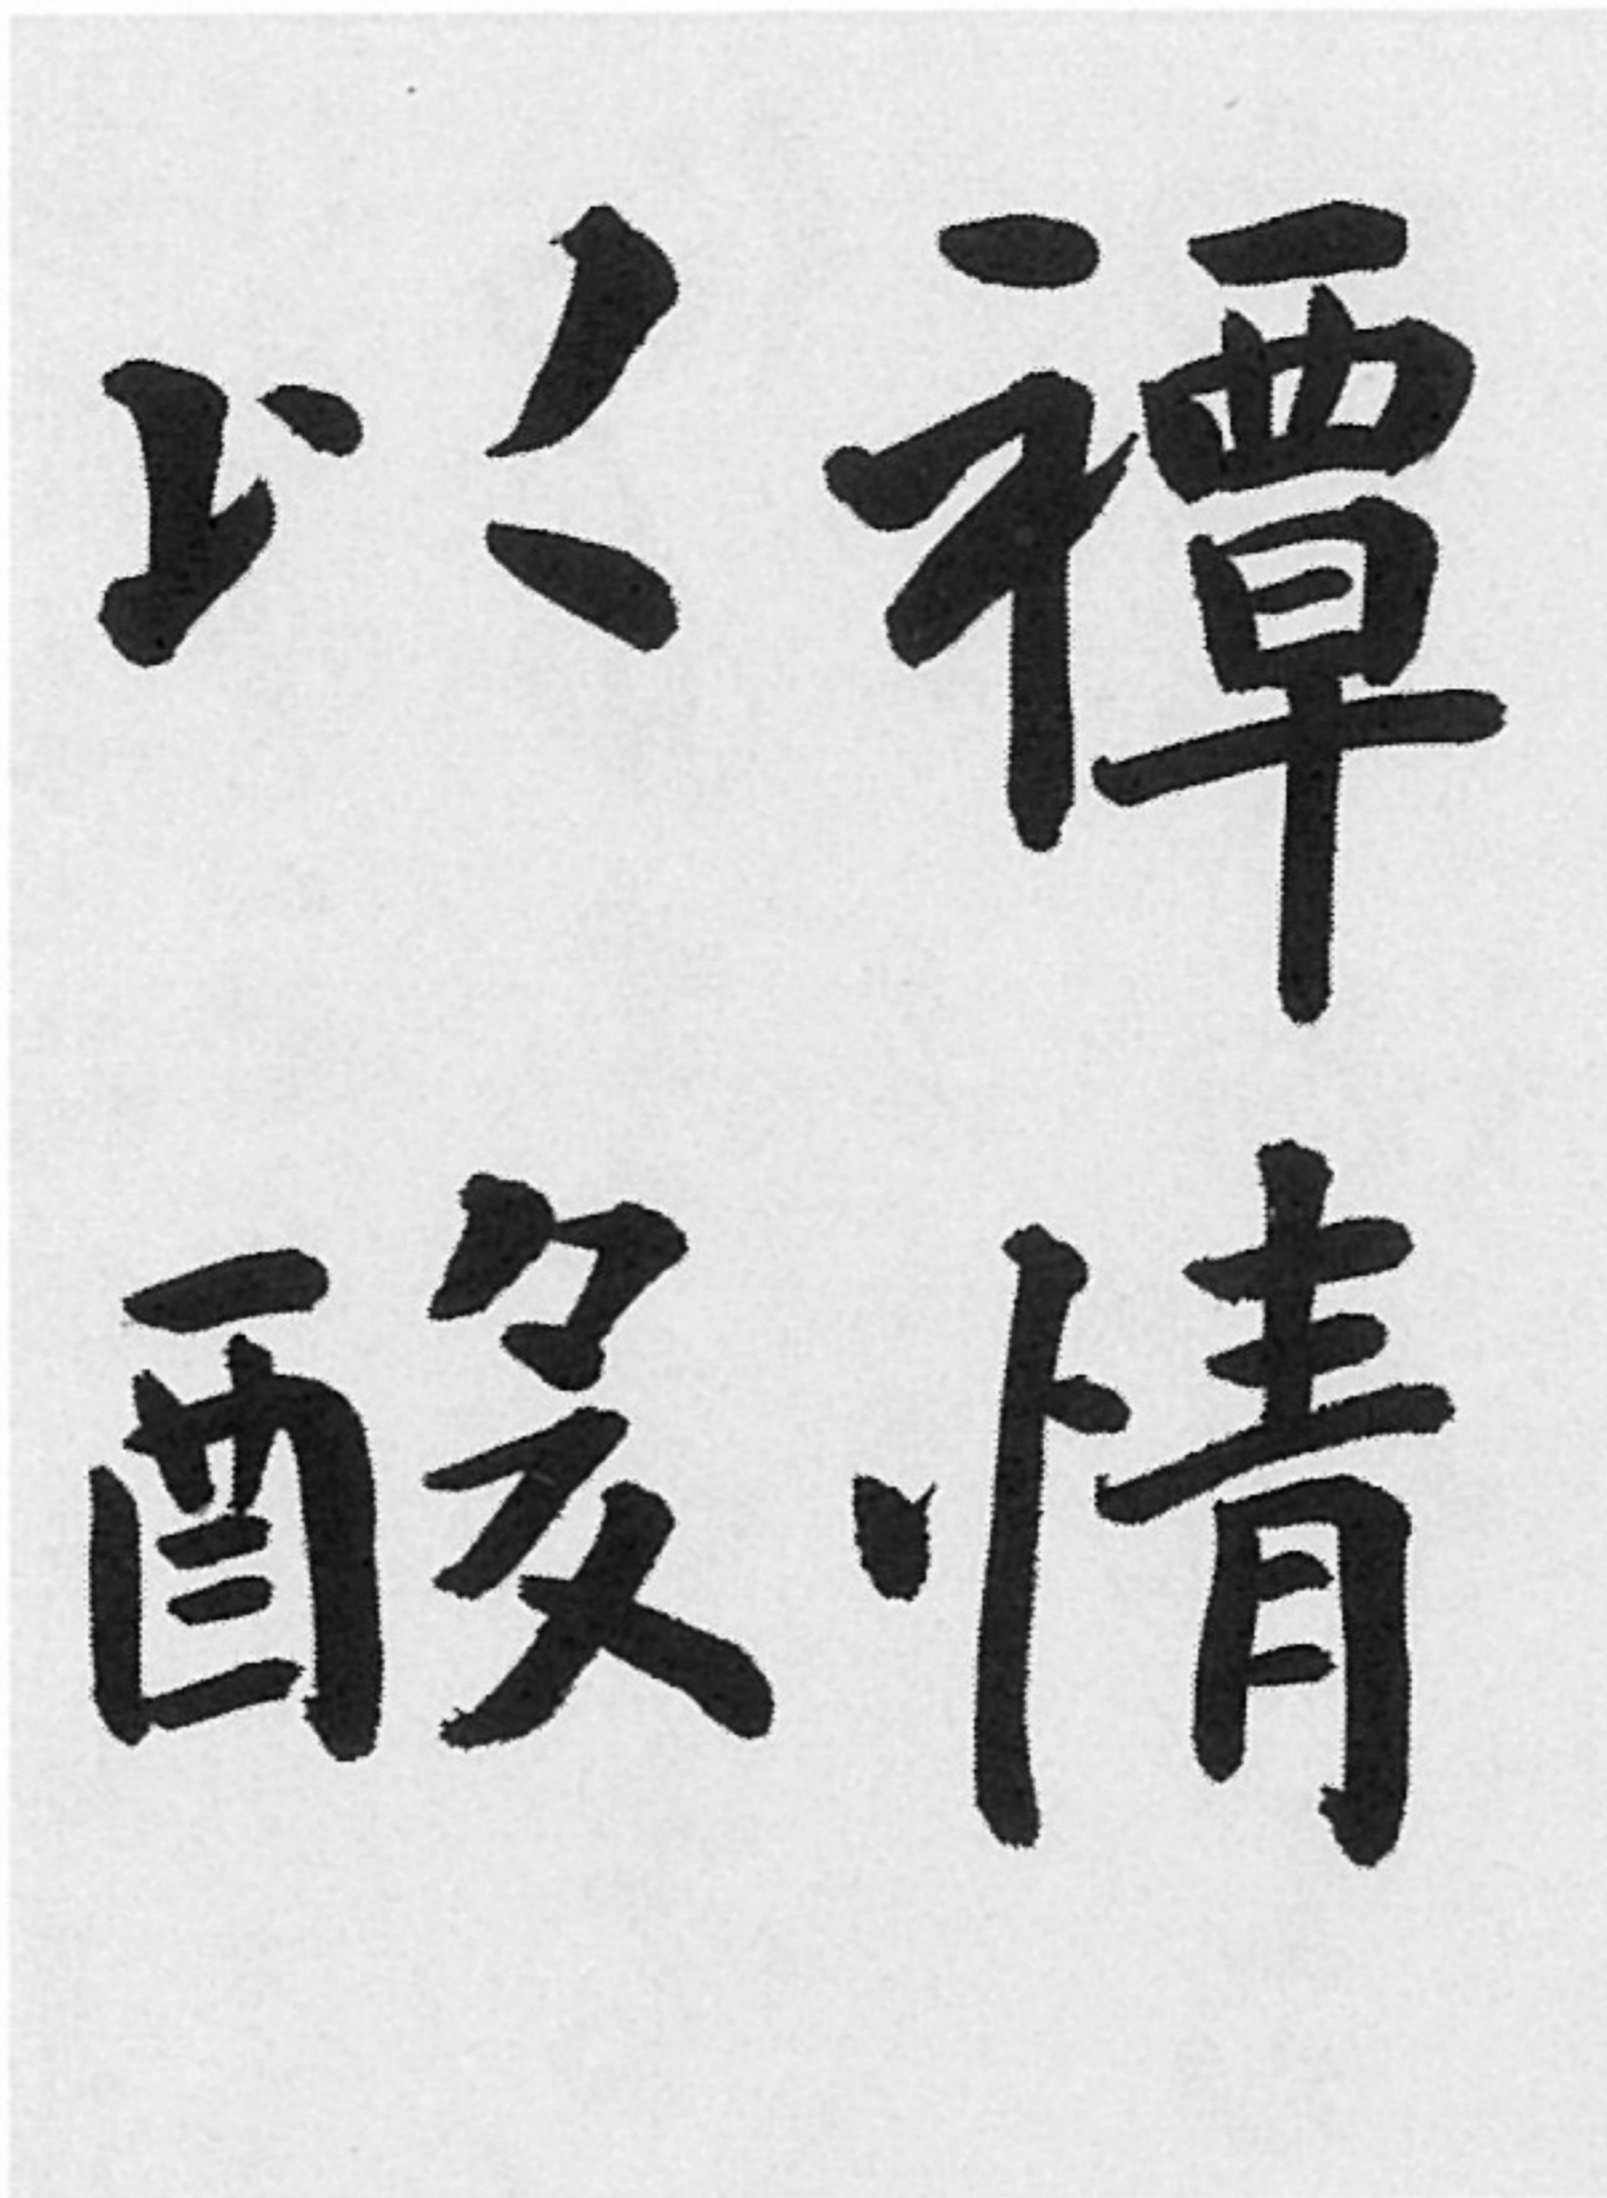 禫情
以酸